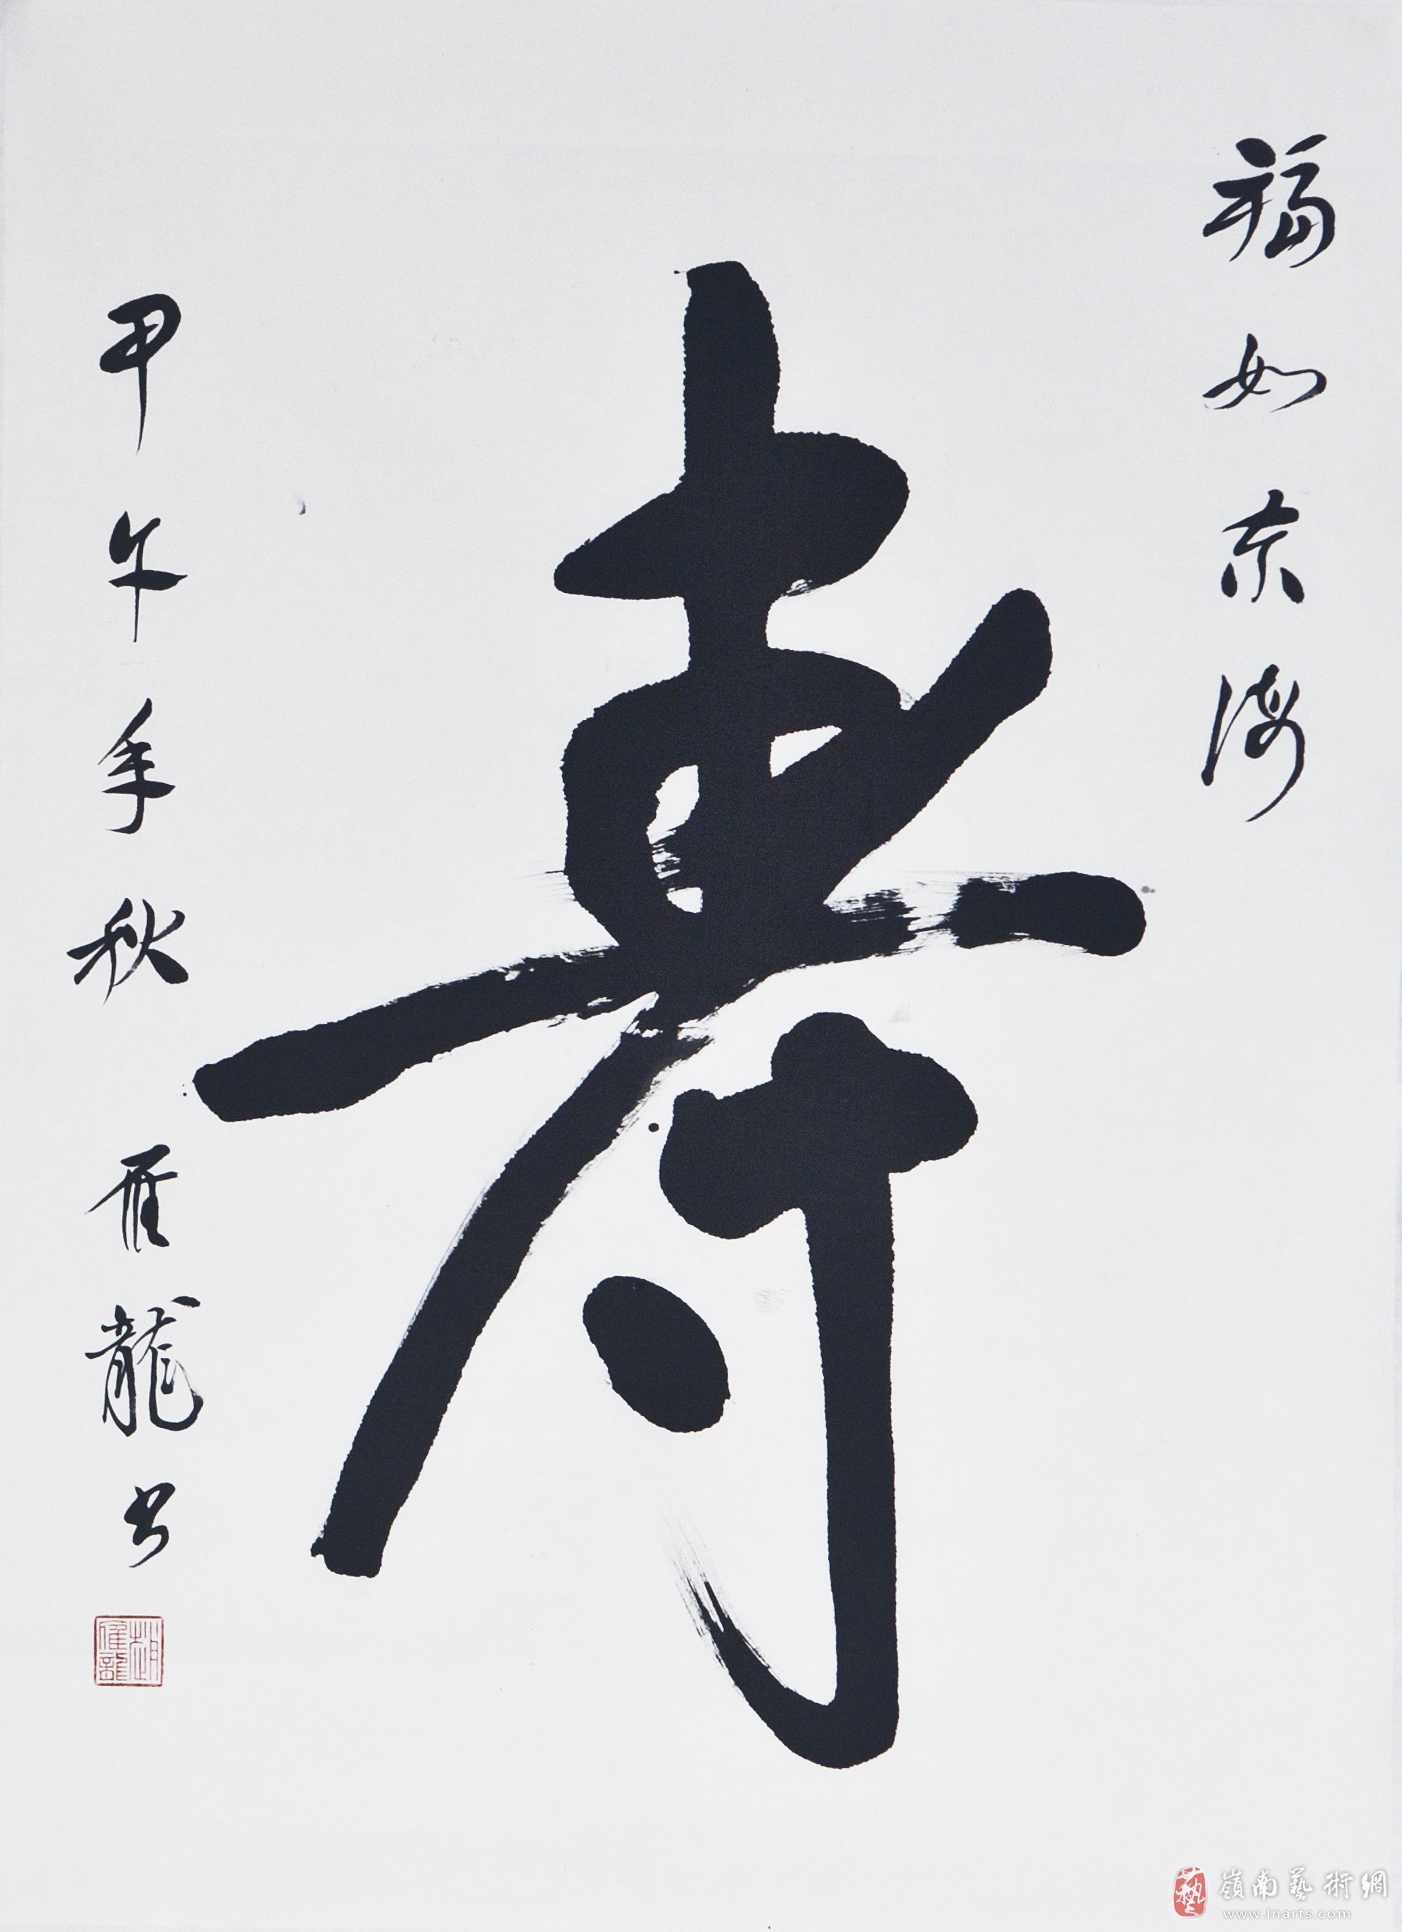 福如东海
寿
甲午年秋 雁龍书
趙雁龍
嶺南藝術網
www.lnarts.com